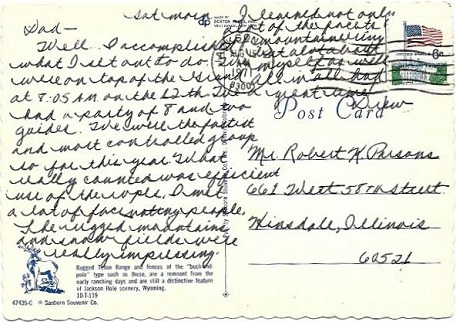 Sat morn.
Dad—
Well... I accomplished
what I set out to do. We
were on top of the Grand
at 8:05 AM on the 12th. We
had a party of 8 and two
guides. We were the fastest
and most controlled group
so far this year. What
really counted was efficient
use of the rope. I met
a lot of fascinating people.
The rugged mountains
and snow fields were
really impressing.
I learned not only
a lot of the facets
mountaineering
but a lot about
myself as well.
all in all had
a great time.
Drew
Post Card
Mr. Robert H. Parsons
661 West 58th Street
Hinsdale, Illinois
60521
Rugged Teton Range and fences of the "buck-and-
pole" type such as these, are a remnant from the
early ranching days and are still a distinctive feature
of Jackson Hole scenery, Wyoming.
10-T-119
47435-C © Sanborn Souvenir Co.
AM
1971
83001
6c